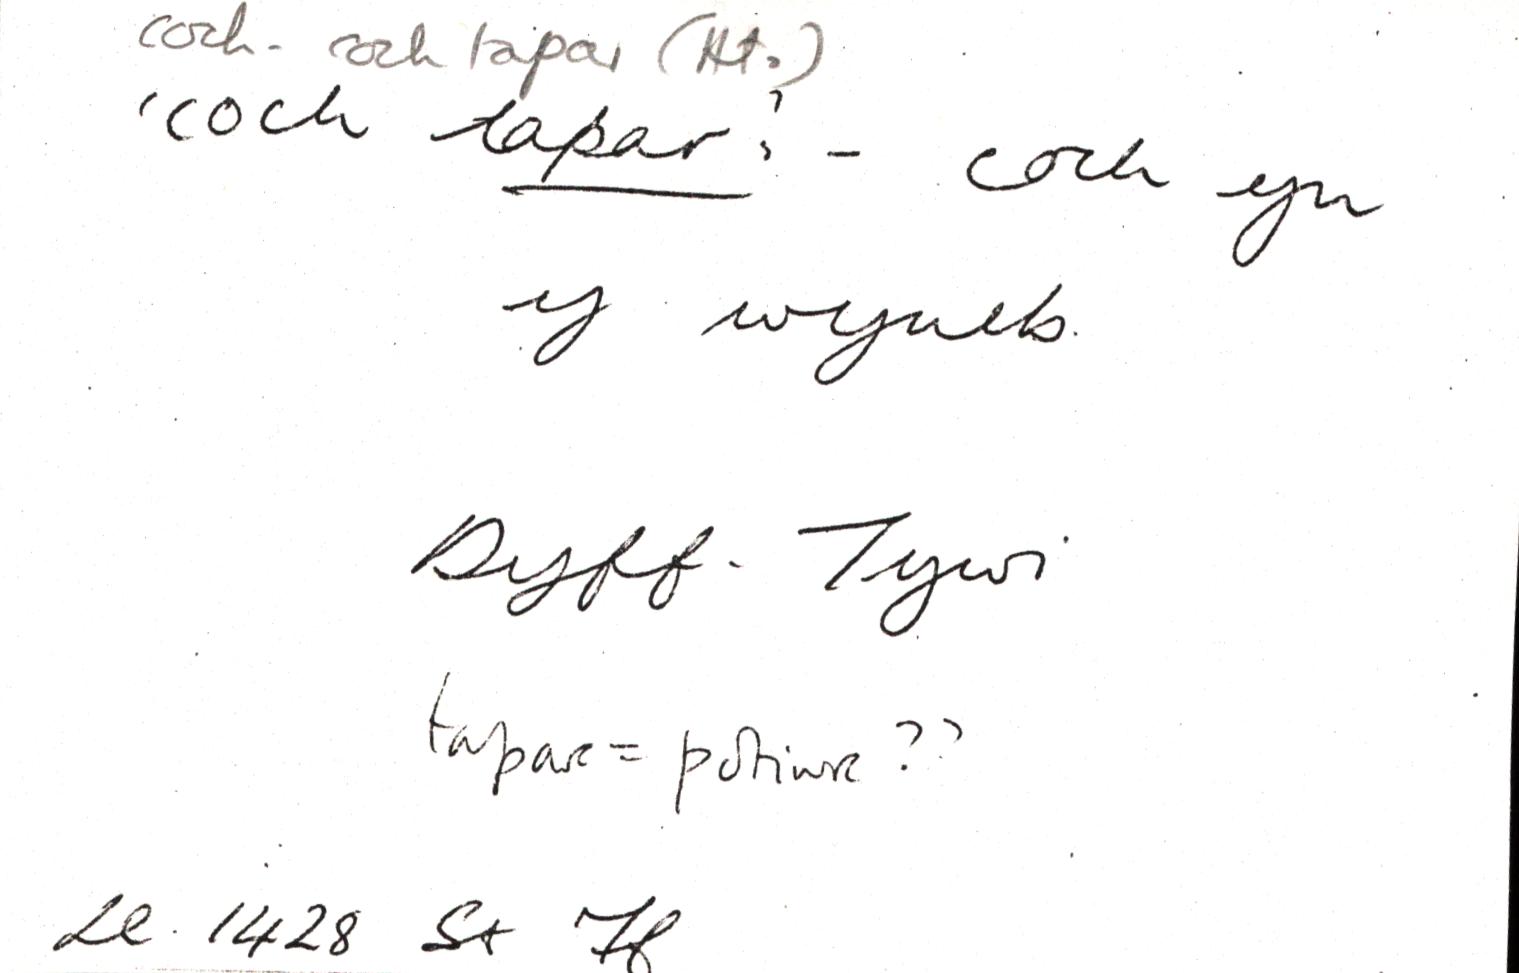 coch - coch tapar (Ht.)
'coch tapar' - coch yn
y wyneb.
Dyff. Tywi
tapar = potiwr??
Le. 1428 St